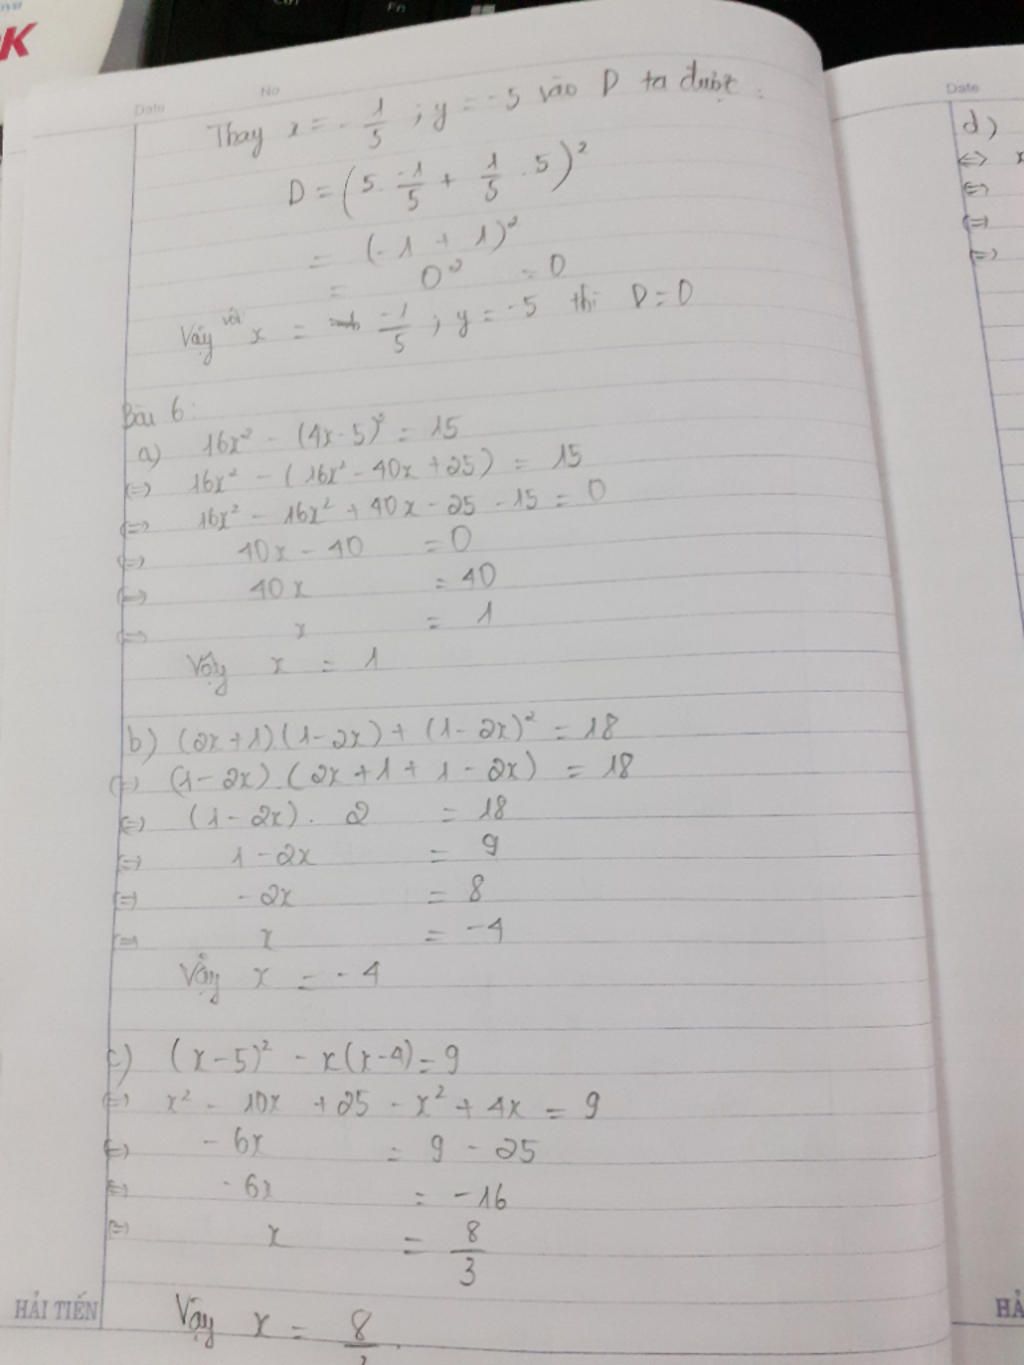 K
Fn
Date
No
Thay x = - 1/5 ; y = -5 vào D ta được :
D = (5. -1/5 + 1/5 . 5)²
= (-1 + 1)²
= 0² = 0
Vậy với x = -1/5 ; y = -5 thì D = 0
Bài 6:
a) 16x² - (4x-5)² = 15
(=) 16x² - (16x² - 40x + 25) = 15
(=) 16x² - 16x² + 40x - 25 - 15 = 0
(=) 40x - 40 = 0
(=) 40x = 40
(=) x = 1
Vậy x = 1
b) (2x+1)(1-2x) + (1-2x)² = 18
(=) (1-2x).(2x+1+1-2x) = 18
(=) (1-2x). 2 = 18
(=) 1-2x = 9
(=) -2x = 8
(=) x = -4
Vậy x = -4
c) (x-5)² - x(x-4) = 9
(=) x² - 10x + 25 - x² + 4x = 9
(=) -6x = 9 - 25
(=) -6x = -16
(=) x = 8/3
Vậy x = 8/3
HẢI TIẾN
Date
d)
<=> x
(=)
(=)
(=)
HẢ